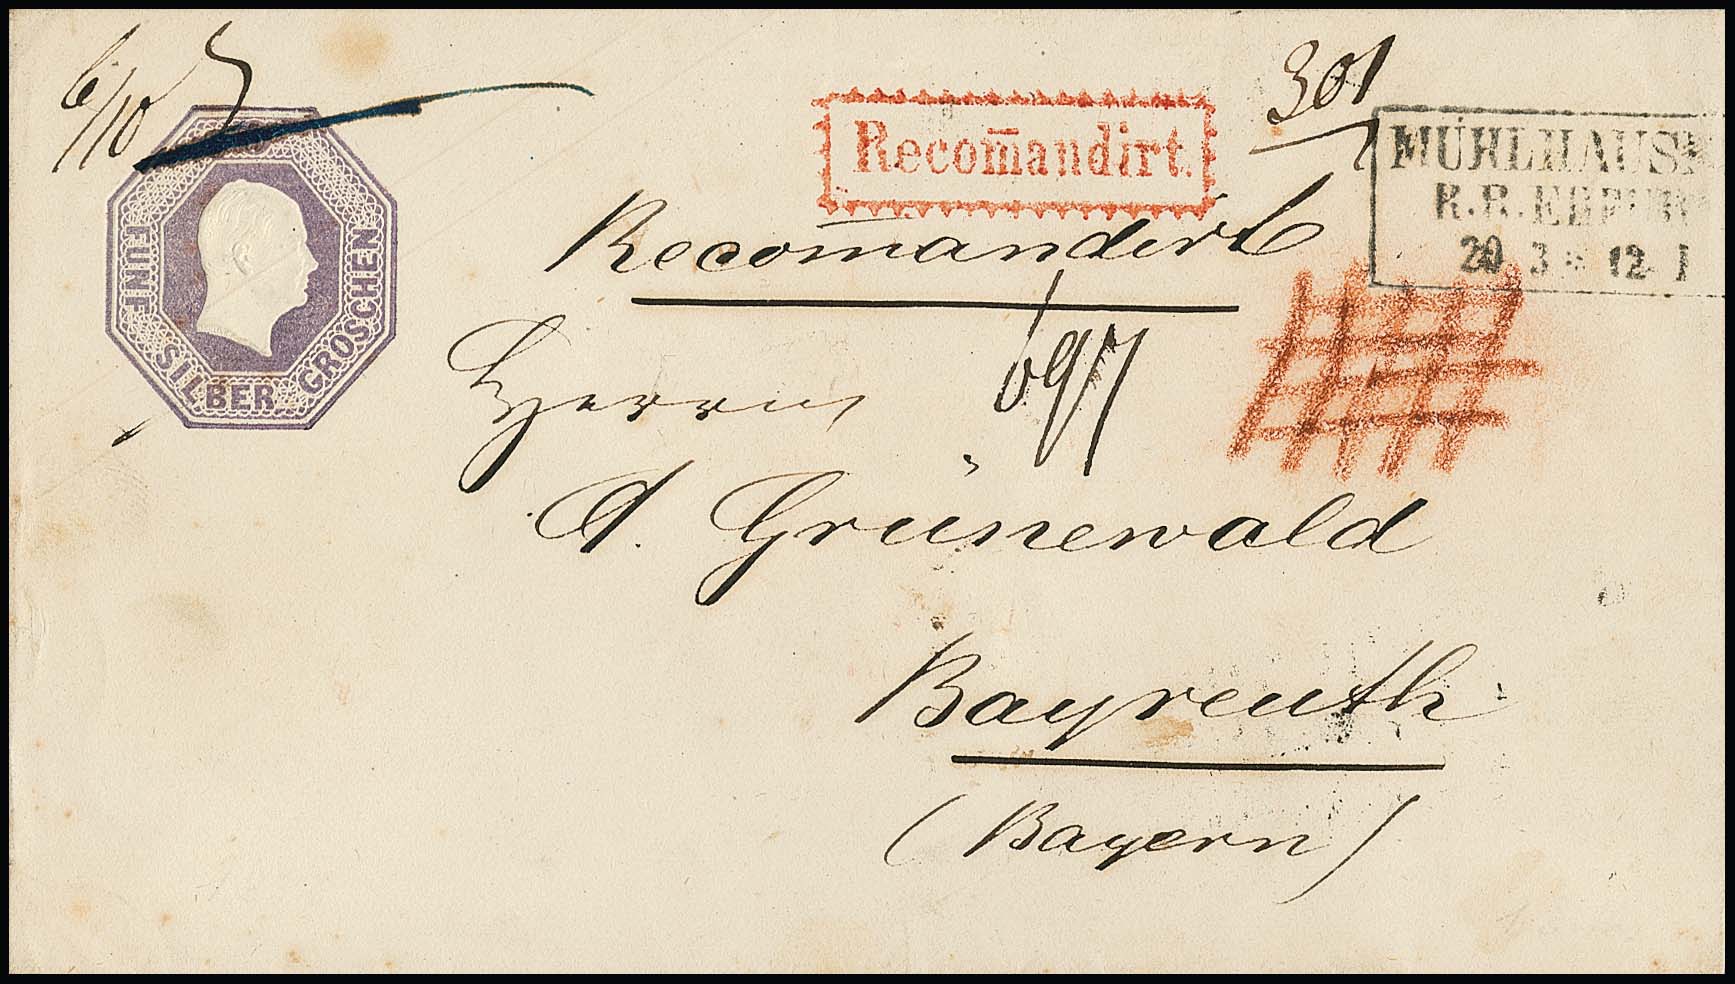 6/10
301
FÜNF SILBER GROSCHEN
Recom̄andirt.
MÜHLHAUS
R.B. ERFUR
20 3 * 12-1
Recom̄andirt
697
Herrn
A. Grünewald
Bayreuth
(Bayern)